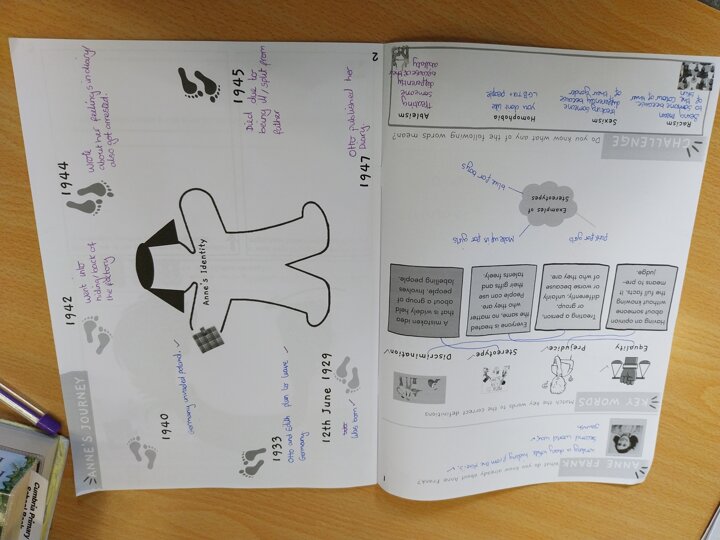 1
ANNE FRANK
What do you know already about Anne Frank?
writing a diary while hiding from the
Second world war
Jewish
KEY WORDS
Match the key words to the correct definitions
Equality
Prejudice
Stereotype
Discrimination
Having an opinion
about someone
without knowing
the full facts, it
means to pre-
judge.
Treating a person,
or group,
differently, unfairly
or worse because
of who they are.
Everyone is treated
the same, no matter
who they are.
People can use
their gifts and
talents freely.
A mistaken idea
that is widely held
about a group of
people. Involves
labelling people.
Examples of
Stereotypes
pink for girls
Make up is for girls
blue for boys
CHALLENGE
Do you know any of the following words mean?
Racism
Being mean
to someone because
of the colour of their
skin
Sexism
treating someone
differently because
of their gender
Homophobia
you dont like
LGBTQ+ people
Ableism
Treating
someone
differently
because of their
ability
ANNE'S JOURNEY
12th June 1929
Was born
1933
Otto and Edith plan to leave
Germany
1940
Germany invaded poland.
1942
Went into
hiding/back of
the factory
1944
Wrote
about her feelings in diary/
also got arrested
1945
Died due to
being ill/split from
father
1947
Otto published her
Diary.
Anne's Identity
2
Cumbria Primary